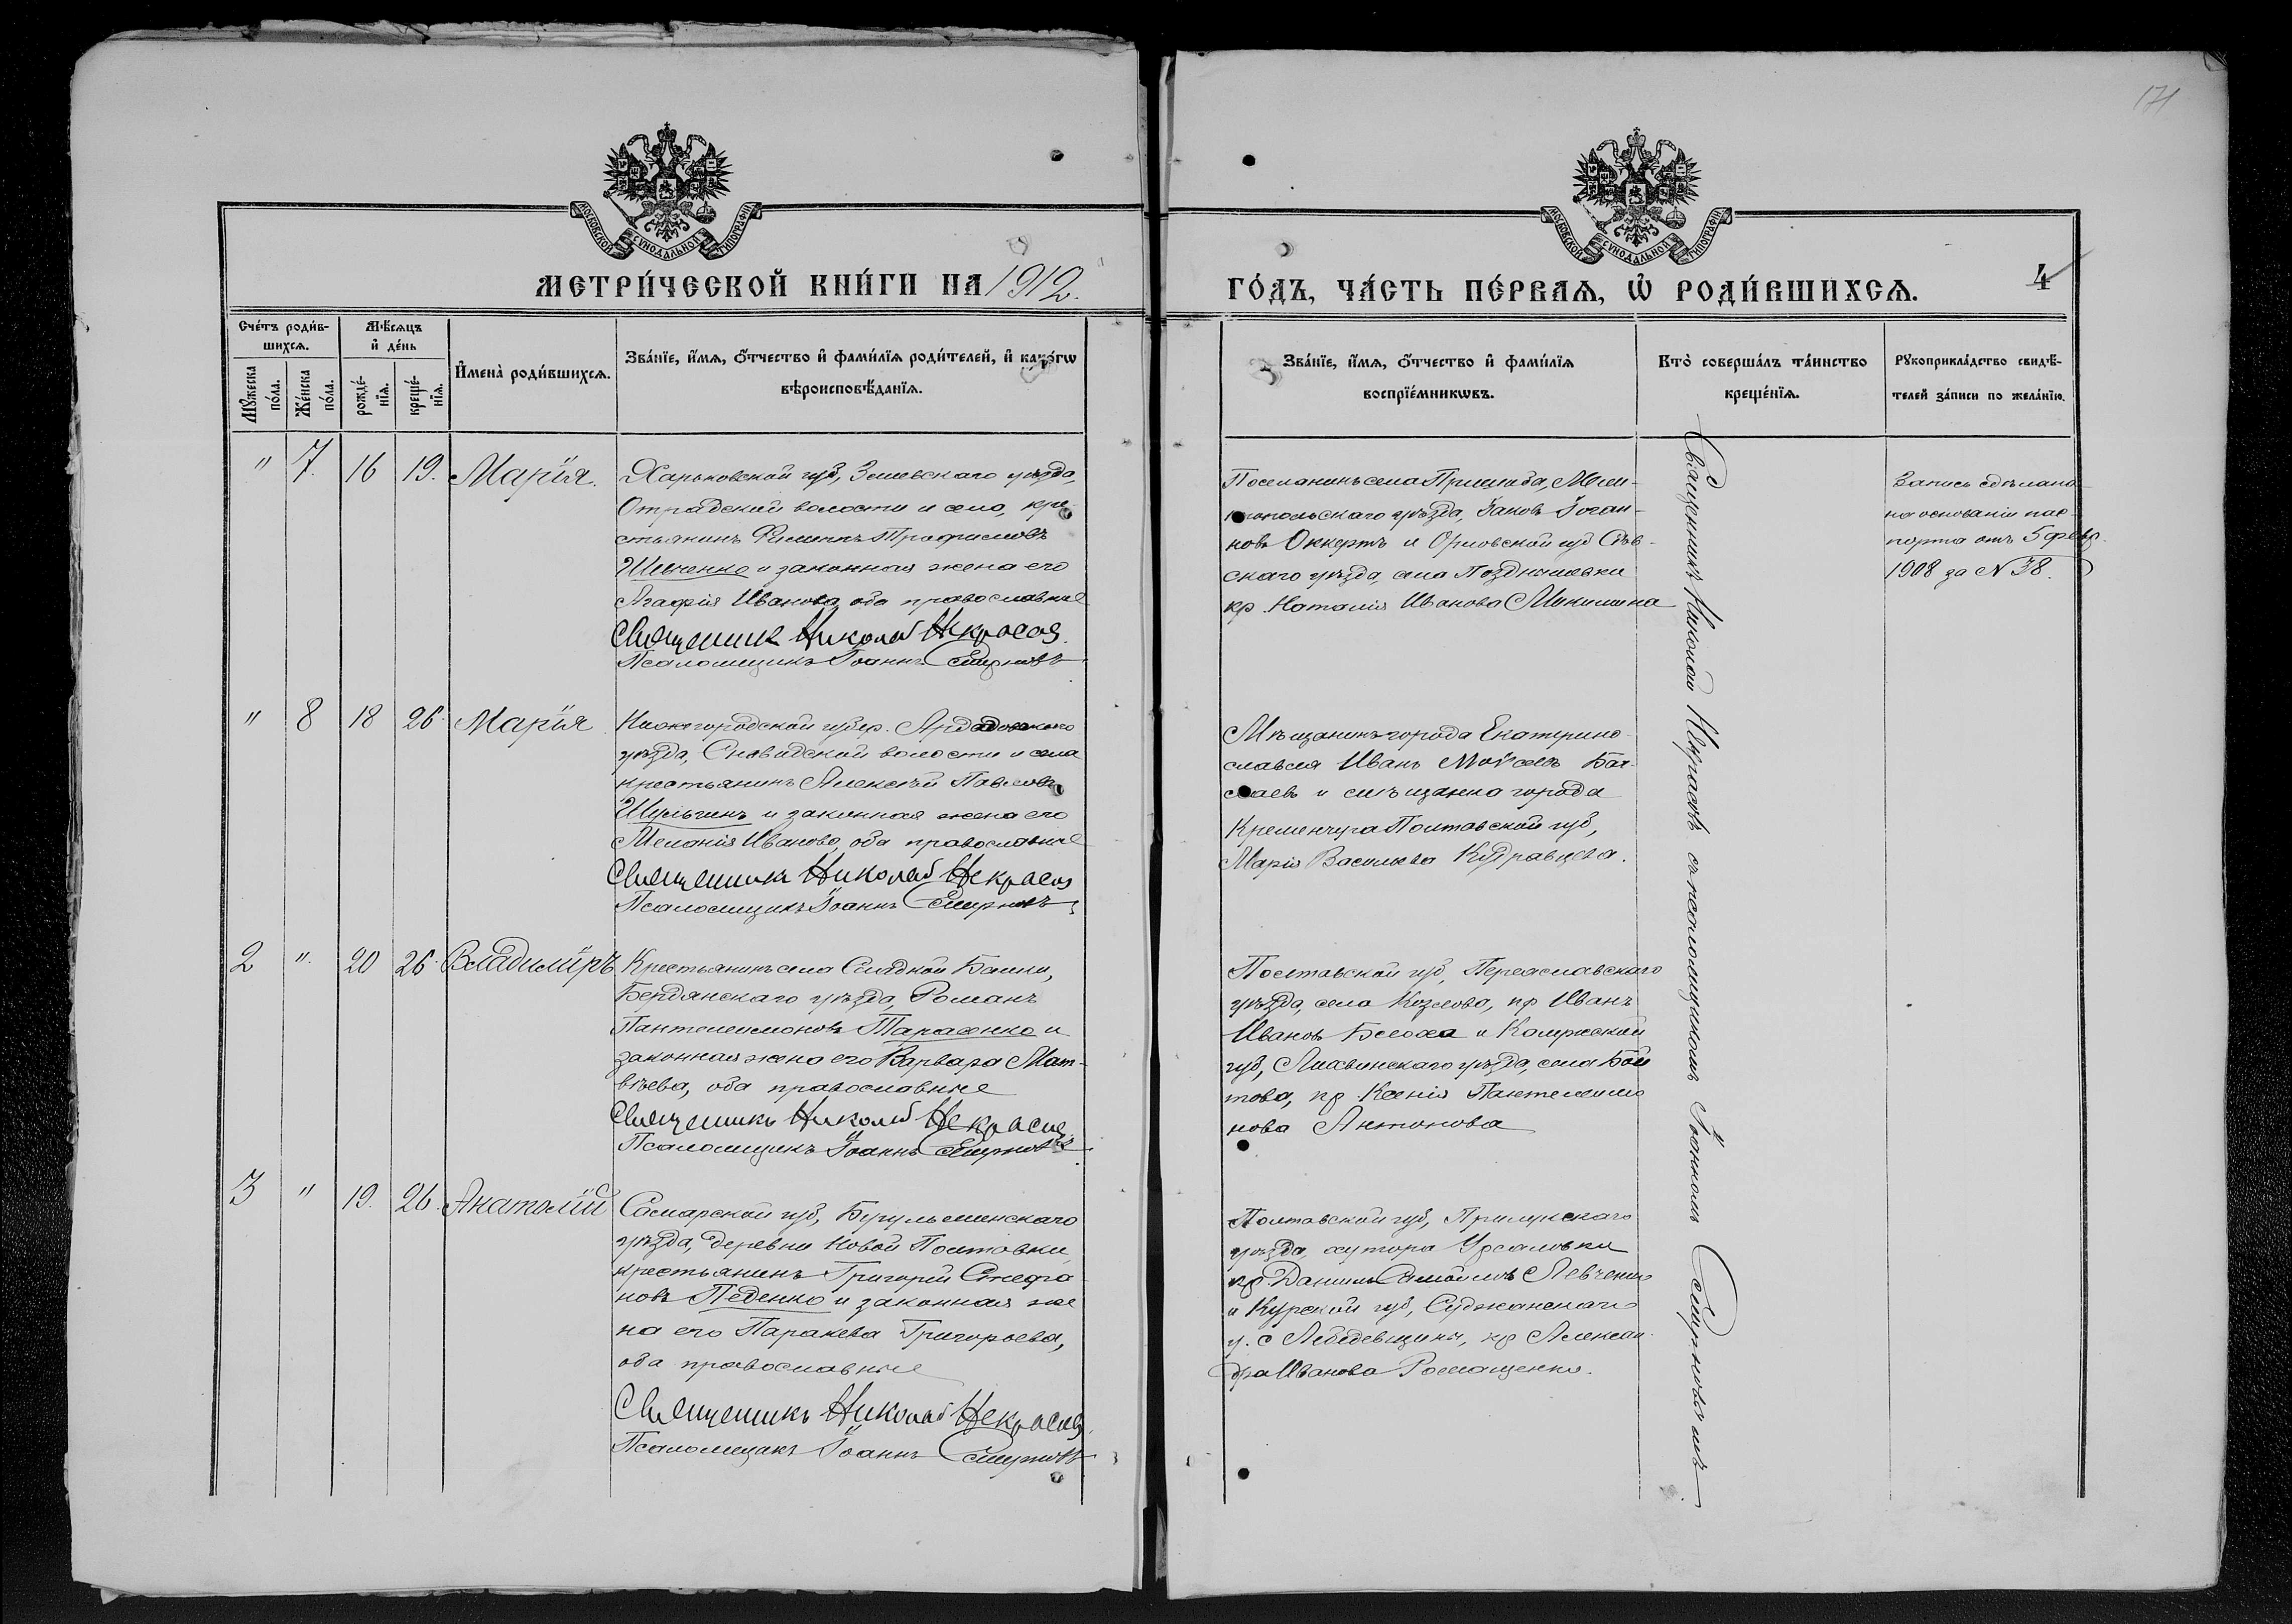 171
МОСКОВСКОЙ СУНОДАЛЬНОЙ ТИПОГРАФІИ
МОСКОВСКОЙ СУНОДАЛЬНОЙ ТИПОГРАФІИ
МЕТРИ́ЧЕСКОЙ КНИ́ГИ НА 1912.
ГО́ДЪ, ЧА́СТЬ ПЕ́РВАѦ, Ѡ҆ РОДИ́ВШИХСѦ.
4
Сче́тъ роди́в-
шихсѧ.
Мѣ́сѧцъ
и҆ де́нь
Мꙋжеска по́ла.
Же́нска по́ла.
рожде́-
нїѧ.
креще́-
нїѧ.
И҆мена̀ роди́вшихсѧ.
Зва́нїе, и҆́мѧ, ѻ҆́тчество и҆ фами́лїѧ роди́телей, и҆ како́гѡ
вѣроисповѣ́данїѧ.
Зва́нїе, и҆́мѧ, ѻ҆́тчество и҆ фами́лїѧ
воспрїе́мникѡвъ.
Кто̀ соверша́лъ та́инство
креще́нїѧ.
Рꙋкоприкла́дство свидѣ́-
телей за́писи по жела́нїю.
" 7. 16 19. Марія.
Харьковской губ, Змиевскаго уѣзда,
Отрадской волости и села, кре-
стьянинъ Филиппъ Трофимовъ
Шевченко и законная жена его
Агафія Иванова, оба православные
Священникъ Николай Некрасов.
Псаломщикъ Іоаннъ Смирновъ
Поселянинъ села Пришиба, Мели-
топольскаго уѣзда, Іаковъ Іоган-
новъ Оккертъ и Орловской губ Сѣв-
скаго уѣзда, села
кр. Наталія Иванова Микишина
Запись сдѣлана
на основаніи пас-
порта отъ 5 февр.
1908 за № 38.
" 8 18 26. Марія
Нижегородской губер. Ардатовскаго
уѣзда, волости и села
крестьянинъ Алексѣй Павловъ
Шульгинъ и законная жена его
Меланія Иванова, оба православные
Священникъ Николай Некрасов
Псаломщикъ Іоаннъ Смирновъ
Мѣщанинъ города Екатерино-
славля Иванъ Моѵсеевъ
и мѣщанка города
Кременчуга Полтавской губ,
Марія Васильева Кудравцева.
2 ". 20 26. Владиміръ
Крестьянинъ села Сладкой Балки,
Бердянскаго уѣзда, Романъ
Пантелеимоновъ Тарасенко и
законная жена его Варвара Мат-
вѣева, оба православные
Священникъ Николай Некрасов
Псаломщикъ Іоаннъ Смирновъ
Полтавской губ, Переяславскаго
уѣзда, села Козлова, кр Иванъ
Ивановъ Белоха и Калужской
губ, Лихвинскаго уѣзда, села Бол-
това, кр Ксенія Пантелеимо
нова Антонова
3 " 19. 26. Анатолій
Самарской губ, Бугульминскаго
уѣзда, деревни Новой Полтавки
крестьянинъ Григорій Стефа-
новъ Педенко и законная же
на его Параскева Григорьева,
оба православные
Священникъ Николай Некрасов
Псаломщикъ Іоаннъ Смирновъ
Полтавской губ, Прилукскаго
уѣзда, хутора
кр. Даниилъ Левченко
и Курской губ, Суджанскаго
у. с Лебедевщины, кр Алексан-
дра Иванова Ромащенко.
Священникъ Николай Некрасовъ съ псаломщикомъ Іоанномъ Смирновымъ